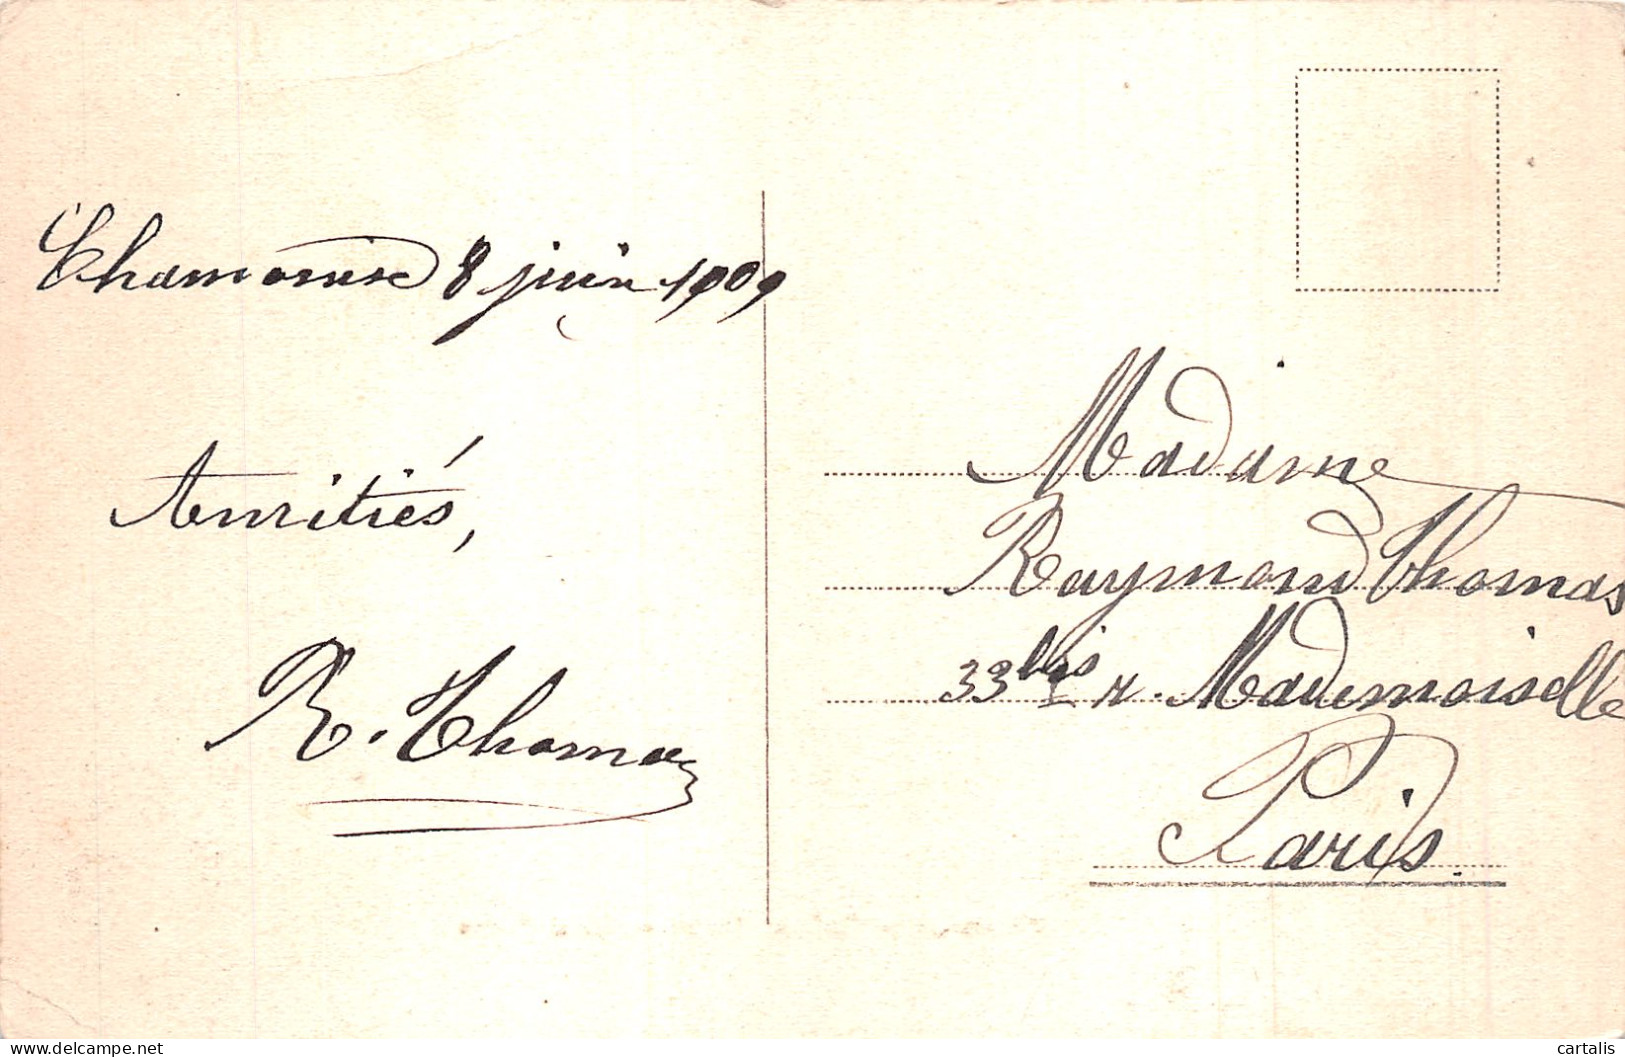 Chamonix 8 juin 1909
Amitiés,
R. Thomas
Madame
Raymond Thomas
33 bis r. Mademoiselle
Paris.
www.delcampe.net
cartalis